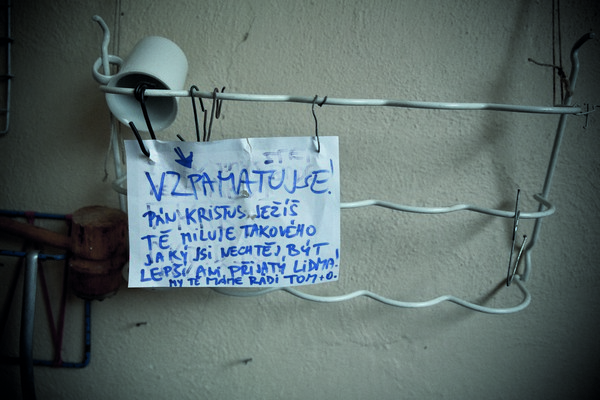 VZPAMATUJ SE!
PÁN KRISTUS JEŽÍŠ
TĚ MILUJE TAKOVÉHO
JAKÝ JSI NECHTĚJ BÝT
LEPŠÍ ANI PŘIJATÝ LIDMA!
MY TĚ MÁME RÁDI TOM+O.